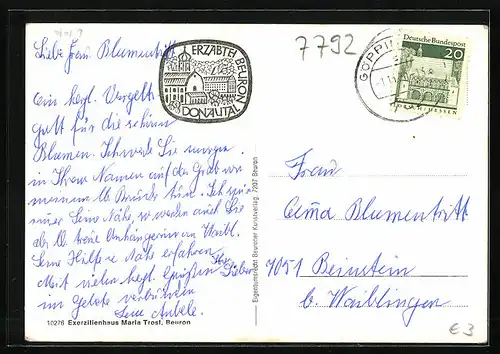 Liebe Frau Blumentritt
Ein herzl. Vergelts
gott für die schönen
Blumen. Ich werde Sie morgen
in Ihrem Namen auf das Grab von
meinem lb. Bruder tun. Ich
immer Seine Nähe, so werden auch Sie
als lb. treue Anhängerin von
Seine Hilfe u Nähe erfahren
Mit vielen herzl. Grüßen Ihr lieber
im Gebete verbunden
10276 Exerzitienhaus Maria Trost, Beuron
ERZABTEI BEURON
DONAUTAL
Eigentumsrecht Beuroner Kunstverlag, 7207 Beuron
7792
GÖPPIN
Deutsche Bundespost
20
LORSCH/HESSEN
Frau
Blumentritt
7051 Beinstein
b. Waiblingen
€ 3